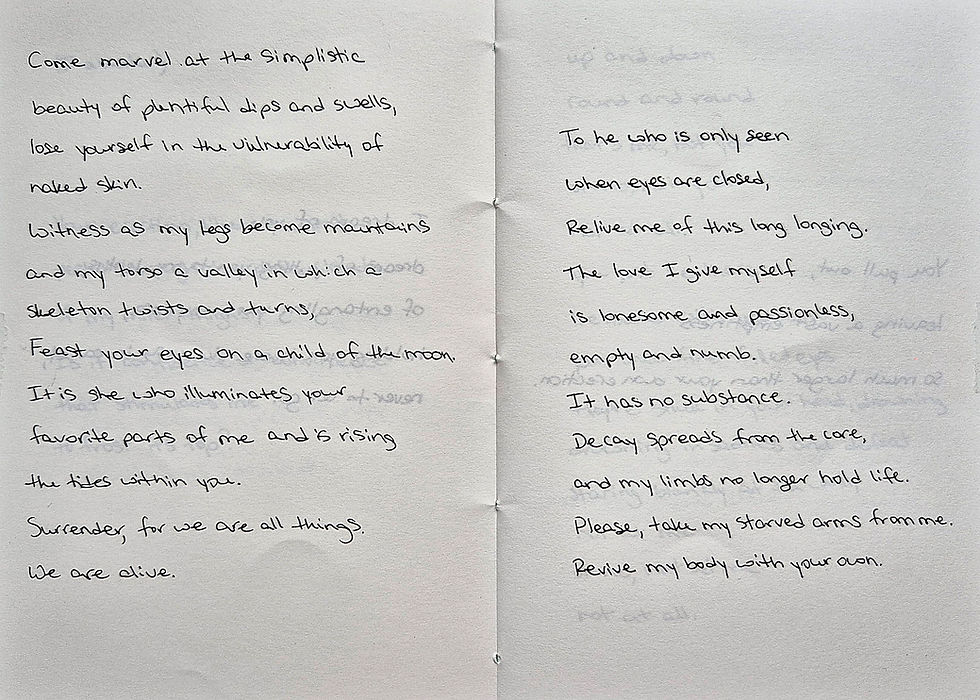 Come marvel at the simplistic
beauty of plentiful dips and swells,
lose yourself in the vulnerability of
naked skin.
Witness as my legs become mountains
and my torso a valley in which a
skeleton twists and turns,
Feast your eyes on a child of the moon.
It is she who illuminates your
favorite parts of me and is rising
the tides within you.
Surrender, for we are all things.
We are alive.
To he who is only seen
when eyes are closed,
Relive me of this long longing.
The love I give myself
is lonesome and passionless,
empty and numb.
It has no substance.
Decay spreads from the core,
and my limbs no longer hold life.
Please, take my starved arms from me.
Revive my body with your own.